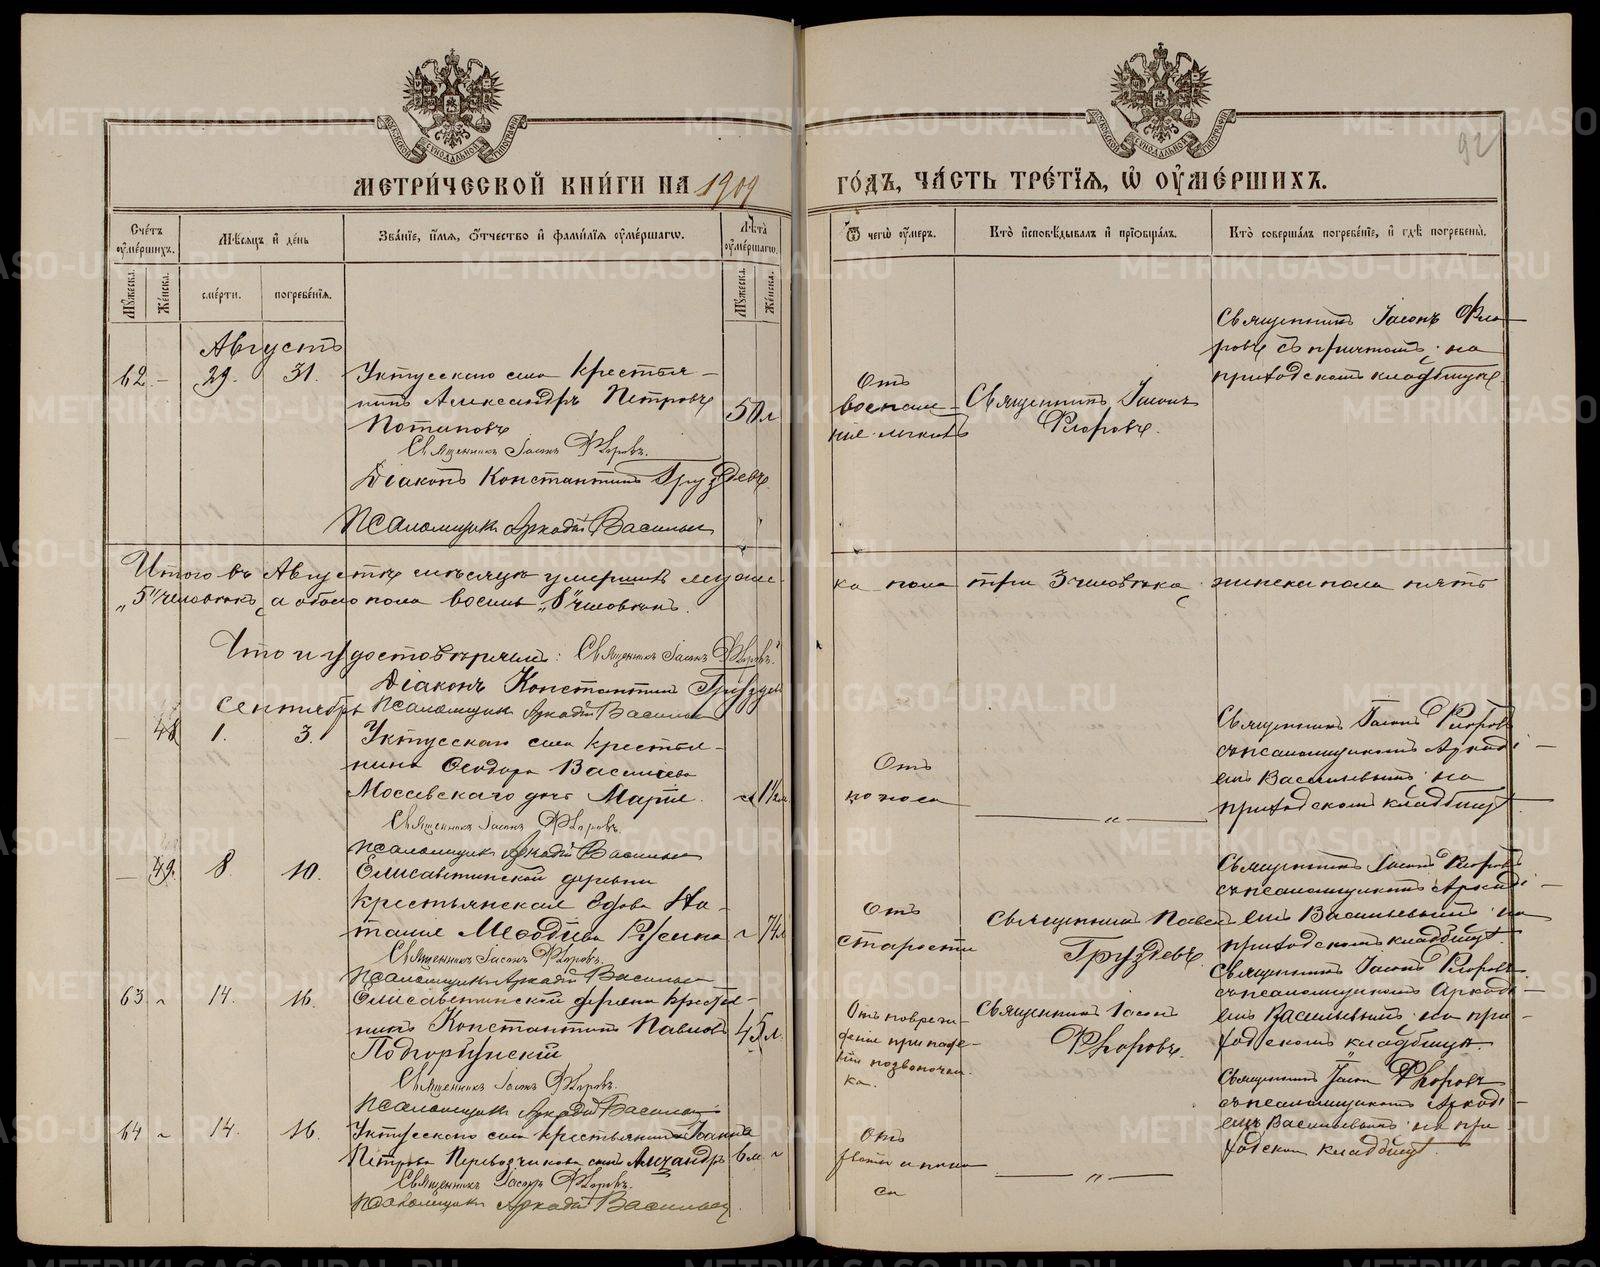 МЕТРИ́ЧЕСКОЙ КНИ́ГИ НА 1909
ГО́ДЪ, ЧА́СТЬ ТРЕ́ТЇѦ, Ѡ҆ ОУ҆МЕ́РШИХЪ.
92
Сче́тъ оу҆ме́ршихъ.
Мꙋ́жеска.
Же́нска.
Мѣ́сѧцъ и҆ де́нь
сме́рти.
погребе́нїѧ.
Зва́нїе, и҆́мѧ, ѻ҆́тчество и҆ фами́лїѧ оу҆ме́ршагѡ.
Лѣ́та оу҆ме́ршагѡ.
Мꙋ́жеска.
Же́нска.
Ѿ чегѡ̀ оу҆́меръ.
Кто̀ и҆сповѣ́дывалъ и҆ прїѡбща́лъ.
Кто̀ соверша́лъ погребе́нїе, и҆ гдѣ̀ погребены̀.
Августъ
62 - 29. 31. Уктусскаго села крестья-
нинъ Александръ Петровъ
Потаповъ 50 л
Священникъ Іасонъ Флоровъ.
Діаконъ Константинъ Груздевъ
Псаломщикъ Аркадій Васильев
Отъ
воспале-
ніе легкихъ
Священникъ Іасонъ
Флоровъ.
Священникъ Іасонъ Фло-
ровъ съ причтомъ на
приходскомъ кладбищѣ.
Итого въ Августѣ мѣсяцѣ умершихъ мужес-
ка пола три 3 человѣка, женска пола пять
„5" человѣкъ, а обоего пола восемь „8" человѣкъ.
Что и удостовѣряемъ: Священникъ Іасонъ Флоровъ.
Діаконъ Константинъ Груздев
Сентябрь Псаломщикъ Аркадій Васильев
48 1. 3. Уктусскаго села крестья-
нина Ѳеодора Васильева
дочь Марія. 1½ м
Священникъ Іасонъ Флоровъ.
Псаломщикъ Аркадій Васильев
Отъ
поноса
— „ —
Священникъ Іасонъ Флоровъ
съ псаломщикомъ Аркаді-
емъ Васильевымъ на
приходскомъ кладбищѣ
49. 8. 10. Елисаветинской деревни
крестьянская вдова На-
талія Меѳодіева Русина 74 л
Священникъ Іасонъ Флоровъ.
Псаломщикъ Аркадій Васильев
Отъ
старости
Священникъ Павел
Груздевъ.
Священникъ Іасонъ Флоровъ
съ псаломщикомъ Аркаді-
емъ Васильевымъ на
приходскомъ кладбищѣ.
63 14. 16. Елисаветинской деревни крестья-
нинъ Константинъ Павловъ 45 л.
Подгорбунскій
Священникъ Іасонъ Флоровъ.
Псаломщикъ Аркадій Васильев
Отъ повреж-
денія при паде-
ніи позвоночни-
ка.
Священникъ Іасонъ
Флоровъ.
Священникъ Іасонъ Флоровъ
съ псаломщикомъ Аркаді-
емъ Васильевымъ на при-
ходскомъ кладбищѣ.
64 14. 16. Уктусскаго села крестьянина Іоанна
Петрова Переводчикова сынъ Александръ 6 м
Священникъ Іасонъ Флоровъ.
Псаломщикъ Аркадій Васильев
Отъ
— „ —
Священникъ Іасон Флоровъ
съ псаломщикомъ Аркаді-
емъ Васильевымъ на при-
ходском кладбищѣ.
METRIKI.GASO-URAL.RU